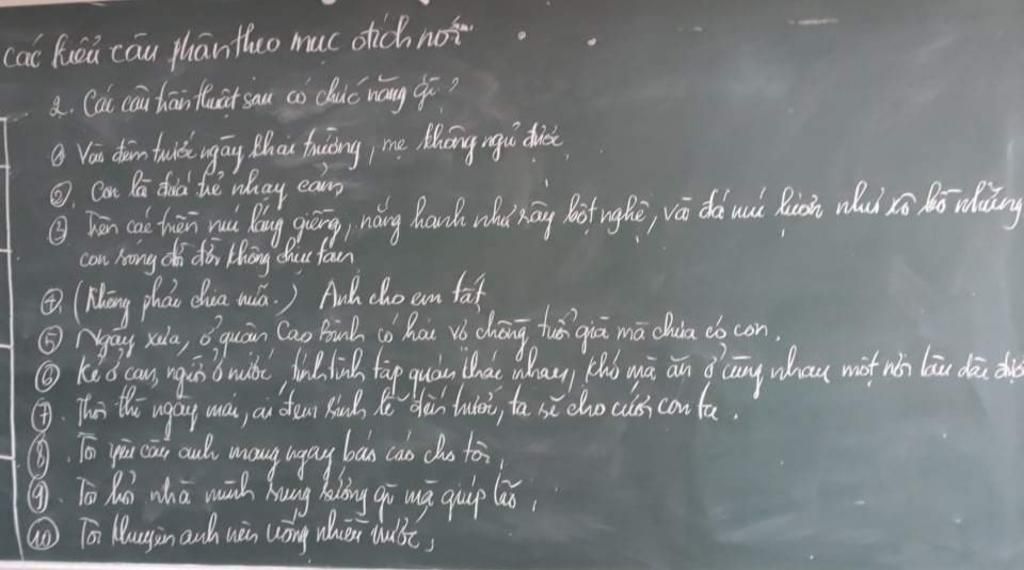 các kiểu câu phân theo mục đích nói
2. Các câu trần thuật sau có chức năng gì?
① Vào đêm trước ngày khai trường, mẹ không ngủ được.
②. Con là đứa trẻ nhạy cảm,
③ Trên các triền núi láng giềng, nắng hanh như rây bột nghệ, và đá núi lượn như xô bồ những
con sóng đồ không chịu tan
④. (Không phải chia nữa.) Anh cho em tất,
⑤ Ngày xưa, ở quận Cao Bình có hai vợ chồng tuổi già mà chưa có con.
⑥ Kẻ ở cạn, người ở nước, tính tình tập quán khác nhau, khó mà ăn ở cùng nhau một nơi lâu dài được
⑦. Thôi thì ngày mai, ai đem sính lễ đến trước, ta sẽ cho cưới con ta.
⑧. Tôi yêu cầu anh mang ngay báo cáo cho tôi,
⑨. Tôi nhà mình sung sướng gì mà giúp lão,
⑩ Tôi khuyên anh nên uống nhiều nước,